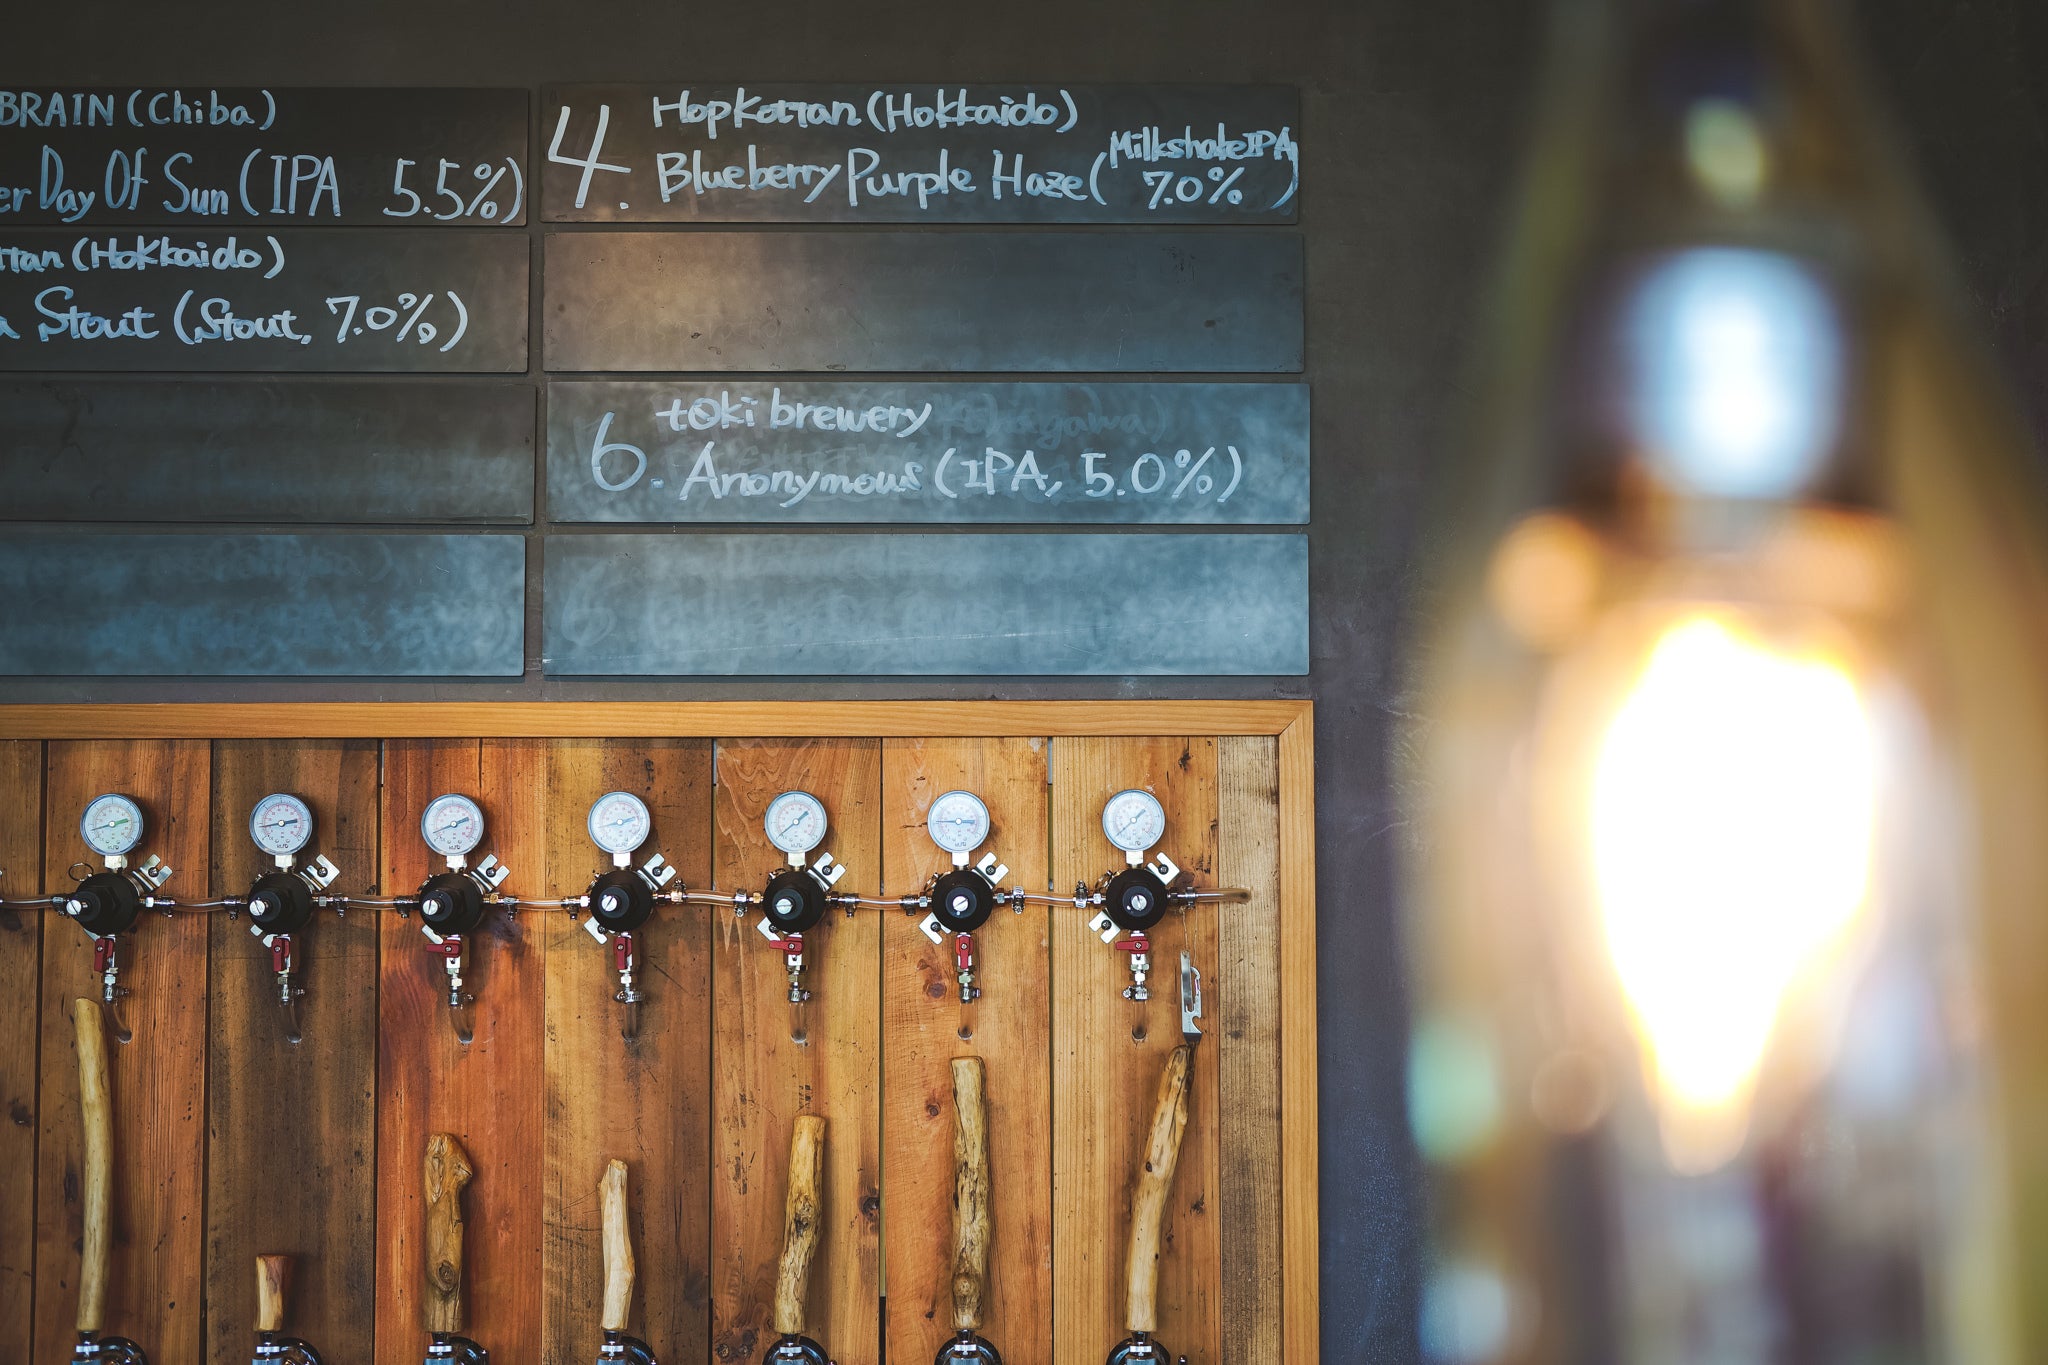 BRAIN (Chiba)
er Day Of Sun (IPA 5.5%)
ttan (Hokkaido)
a Stout (Stout, 7.0%)
4. HopKottan (Hokkaido)
Blueberry Purple Haze (MilkshakeIPA 7.0%)
6. toki brewery
Anonymous (IPA, 5.0%)